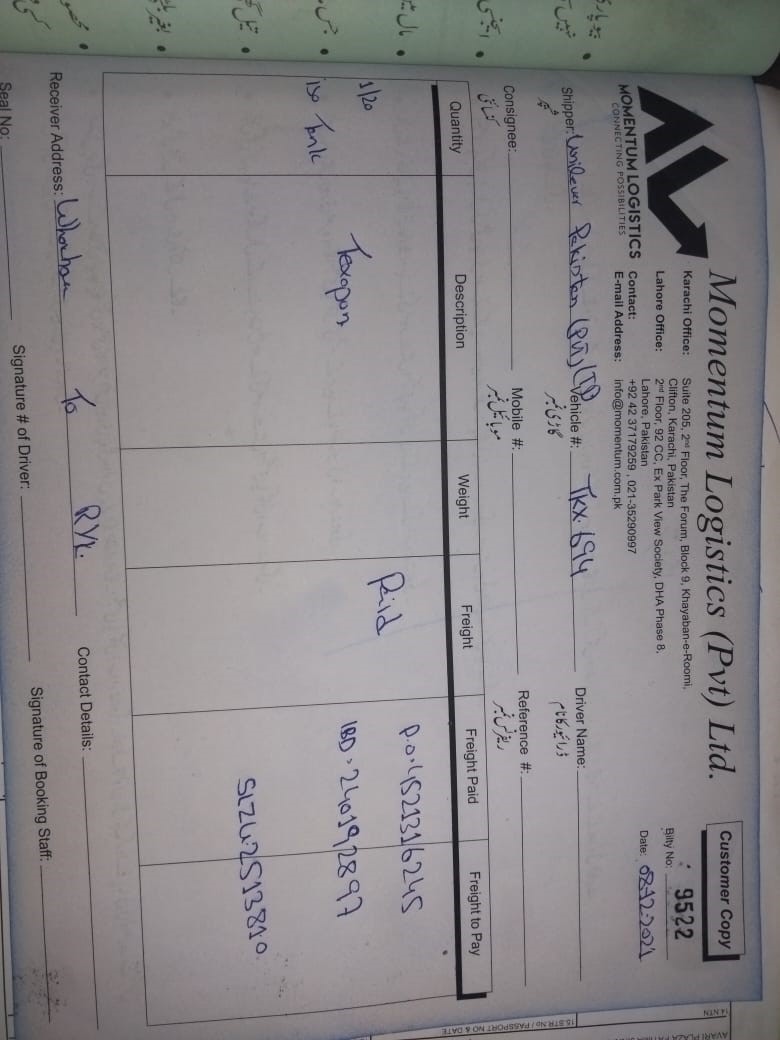 Momentum Logistics (Pvt) Ltd.
Customer Copy
MOMENTUM LOGISTICS
CONNECTING POSSIBILITIES
Karachi Office: Suite 205, 2nd Floor, The Forum, Block 9, Khayaban-e-Roomi,
Clifton, Karachi, Pakistan
Lahore Office: 2nd Floor, 92 CC, Ex Park View Society, DHA Phase 8,
Lahore, Pakistan
Contact: +92 42 37179259 , 021-35290997
E-mail Address: info@momentum.com.pk
Bilty No: 9522
Date: 08-12-2021
Shipper: Unilever Pakistan (Pvt) LTD Vehicle #: TKX-694 Driver Name:
شپر گاڑی نمبر ڈرائیور کا نام
Consignee: Mobile #: Reference #:
کنسائنی موبائیل نمبر ریفرنس نمبر
Quantity Description Weight Freight Freight Paid Freight to Pay
1/20 Texapon Paid P.O.4521316245
iso Tank IBD-240192897
SLZU2513810
Receiver Address: To RYK. Contact Details:
Seal No: Signature # of Driver: Signature of Booking Staff:
بیوپاری
نہیں
ایجنسی
مال میں
جس
تیل
بغیر بلٹی
کسی